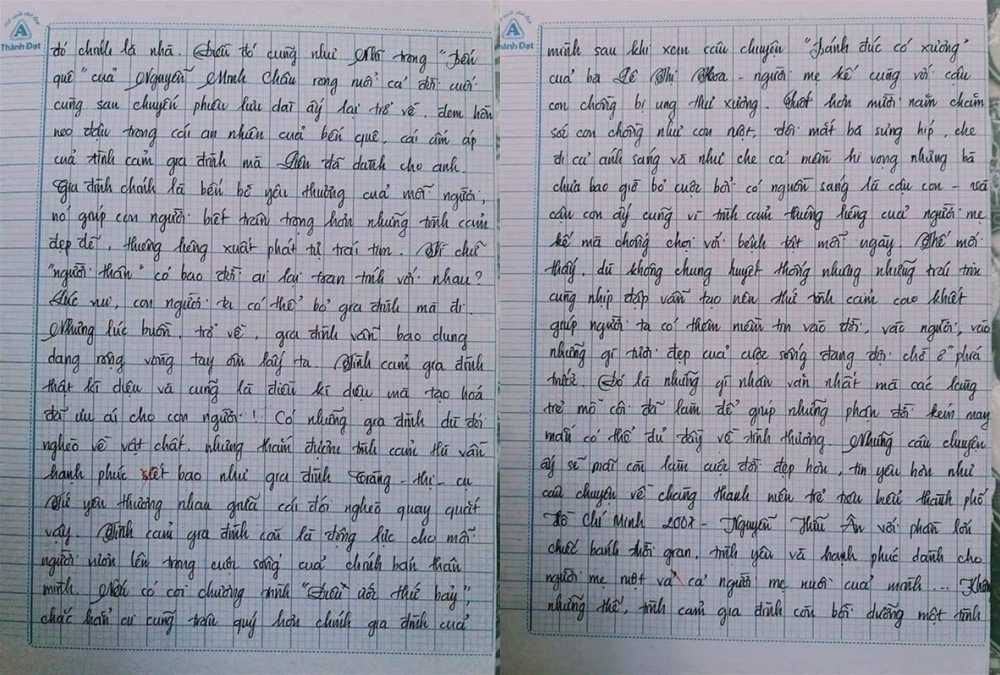 Thành Đạt
đó chính là nhà. Điều đó cũng như Nhĩ trong "Bến
quê" của Nguyễn Minh Châu rong ruổi cả đời cuối
cùng sau chuyến phiêu lưu dài ấy lại trở về, đem hồn
neo đậu trong cái an nhiên của bến quê, cái ấm áp
của tình cảm gia đình mà Liên đã dành cho anh.
Gia đình chính là bến bờ yêu thương của mỗi người,
nó giúp con người biết trân trọng hơn những tình cảm
đẹp đẽ, thiêng liêng xuất phát từ trái tim. Vì chữ
"người thân" có bao đời ai lại toan tính với nhau?
Lúc vui, con người ta có thể bỏ gia đình mà đi.
Nhưng lúc buồn, trở về, gia đình vẫn bao dung
dang rộng vòng tay ôm lấy ta. Tình cảm gia đình
thật kì diệu và cũng là điều kì diệu mà tạo hoá
đã ưu ái cho con người! Có những gia đình dù đói
nghèo về vật chất nhưng thấm đượm tình cảm thì vẫn
hạnh phúc biết bao như gia đình Tràng - thị - cụ
Tứ yêu thương nhau giữa cái đói nghèo quay quắt
vậy. Tình cảm gia đình còn là động lực cho mỗi
người vươn lên trong cuộc sống của chính bản thân
mình. Nếu có coi chương trình "Điều ước thứ bảy",
chắc hẳn ai cũng trân quý hơn chính gia đình của
Thành Đạt
mình sau khi xem câu chuyện "Bánh đúc có xương"
của bà Lê Thị Hoa - người mẹ kế cùng với cậu
con chồng bị ung thư xương. Suốt hơn mười năm chăm
sóc con chồng như con ruột, đôi mắt bà sưng híp, che
đi cả ánh sáng và như che cả niềm hi vọng nhưng bà
chưa bao giờ bỏ cuộc bởi có nguồn sáng là cậu con - mà
cậu con ấy cũng vì tình cảm thiêng liêng của người mẹ
kế mà chống chọi với bệnh tật mỗi ngày. Thế mới
thấy, dù không chung huyết thống nhưng những trái tim
cùng nhịp đập vẫn tạo nên thứ tình cảm cao khiết
giúp người ta có thêm niềm tin vào đời, vào người, vào
những gì tươi đẹp của cuộc sống đang đợi chờ ở phía
trước. Đó là những gì nhân văn nhất mà các làng
trẻ mồ côi đã làm để giúp những phận đời kém may
mắn có thể đủ đầy về tình thương. Những câu chuyện
ấy sẽ mãi còn làm cuộc đời đẹp hơn, tin yêu hơn như
câu chuyện về chàng thanh niên trẻ tiêu biểu thành phố
Hồ Chí Minh 2007 - Nguyễn Hữu Ân với phần lớn
chiếc bánh thời gian, tình yêu và hạnh phúc dành cho
người mẹ ruột và cả người mẹ nuôi của mình... Không
những thế, tình cảm gia đình còn bồi dưỡng một tình